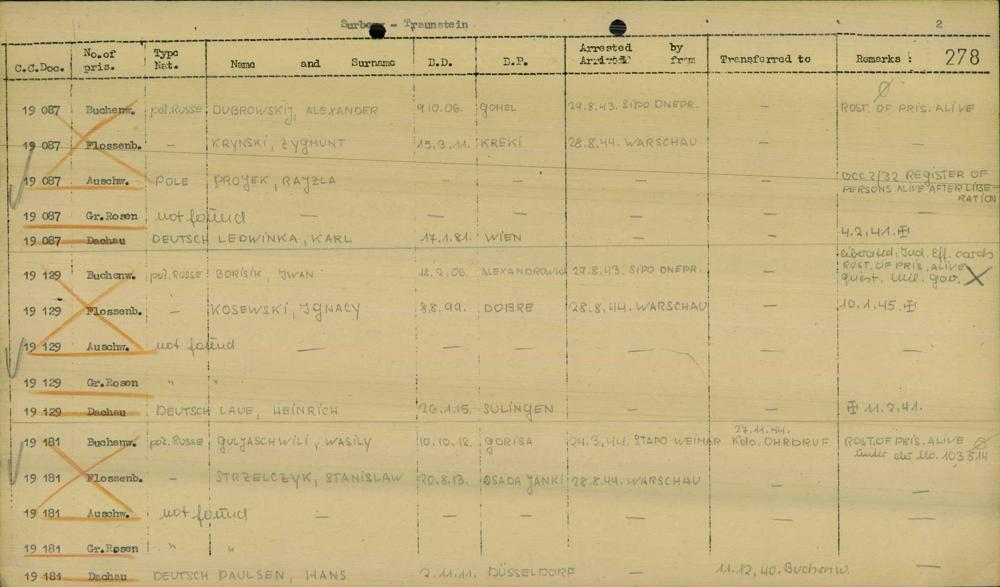 Surberg - Traunstein 2
C.C.Doc. No.of pris. Type Nat. Name and Surname D.D. D.P. Arrested by Transferred to Remarks : 278
Arrived from
19 087 Buchenw. pol. RUSSE DUBROWSKIJ, ALEXANDER 9.10.06. GOMEL 29.8.43. SIPO DNEPR. — ROST. OF PRIS. ALIVE
19 087 Flossenb. - KRYNSKI, ZYGMUNT 15.3.11. KREKI 28.8.44. WARSCHAU — —
19 087 Auschw. POLE PROYEK, RAYZLA — — — — OCC2/32 REGISTER OF
PERSONS ALIVE AFTER LIBE-
RATION
19 087 Gr.Rosen not found — — — — — —
19 087 Dachau DEUTSCH LEDWINKA, KARL 17.1.81. WIEN — — 4.2.41.
19 129 Buchenw. pol. RUSSE BORISIK, IWAN 18.2.06. ALEXANDROWKA 29.8.43. SIPO DNEPR. — liberated: Ind. Eff. cards
ROST. OF PRIS. ALIVE
quest. Mil. gov. X
19 129 Flossenb. - KOSEWSKI, IGNACY 8.8.99. DOBRE 28.8.44. WARSCHAU — 10.1.45.
19 129 Auschw. not found — — — — — —
19 129 Gr.Rosen " "
19 129 Dachau DEUTSCH LAUE, HEINRICH 26.1.15. SULINGEN — — 11.2.41.
19 181 Buchenw. pol. RUSSE GULJASCHWILI, WASILY 10.10.18. GORISA 24.3.44. STAPO WEIMAR 27.11.44. Kdo. OHRDRUF ROST. OF PRIS. ALIVE
unter der No. 103514
19 181 Flossenb. - STRZELCZYK, STANISLAW 20.8.13. OSADA JANKI 28.8.44. WARSCHAU — —
19 181 Auschw. not found — — — — — —
19 181 Gr.Rosen " "
19 181 Dachau DEUTSCH PAULSEN, HANS 2.11.11. DÜSSELDORF — 11.12.40. Buchenw. —